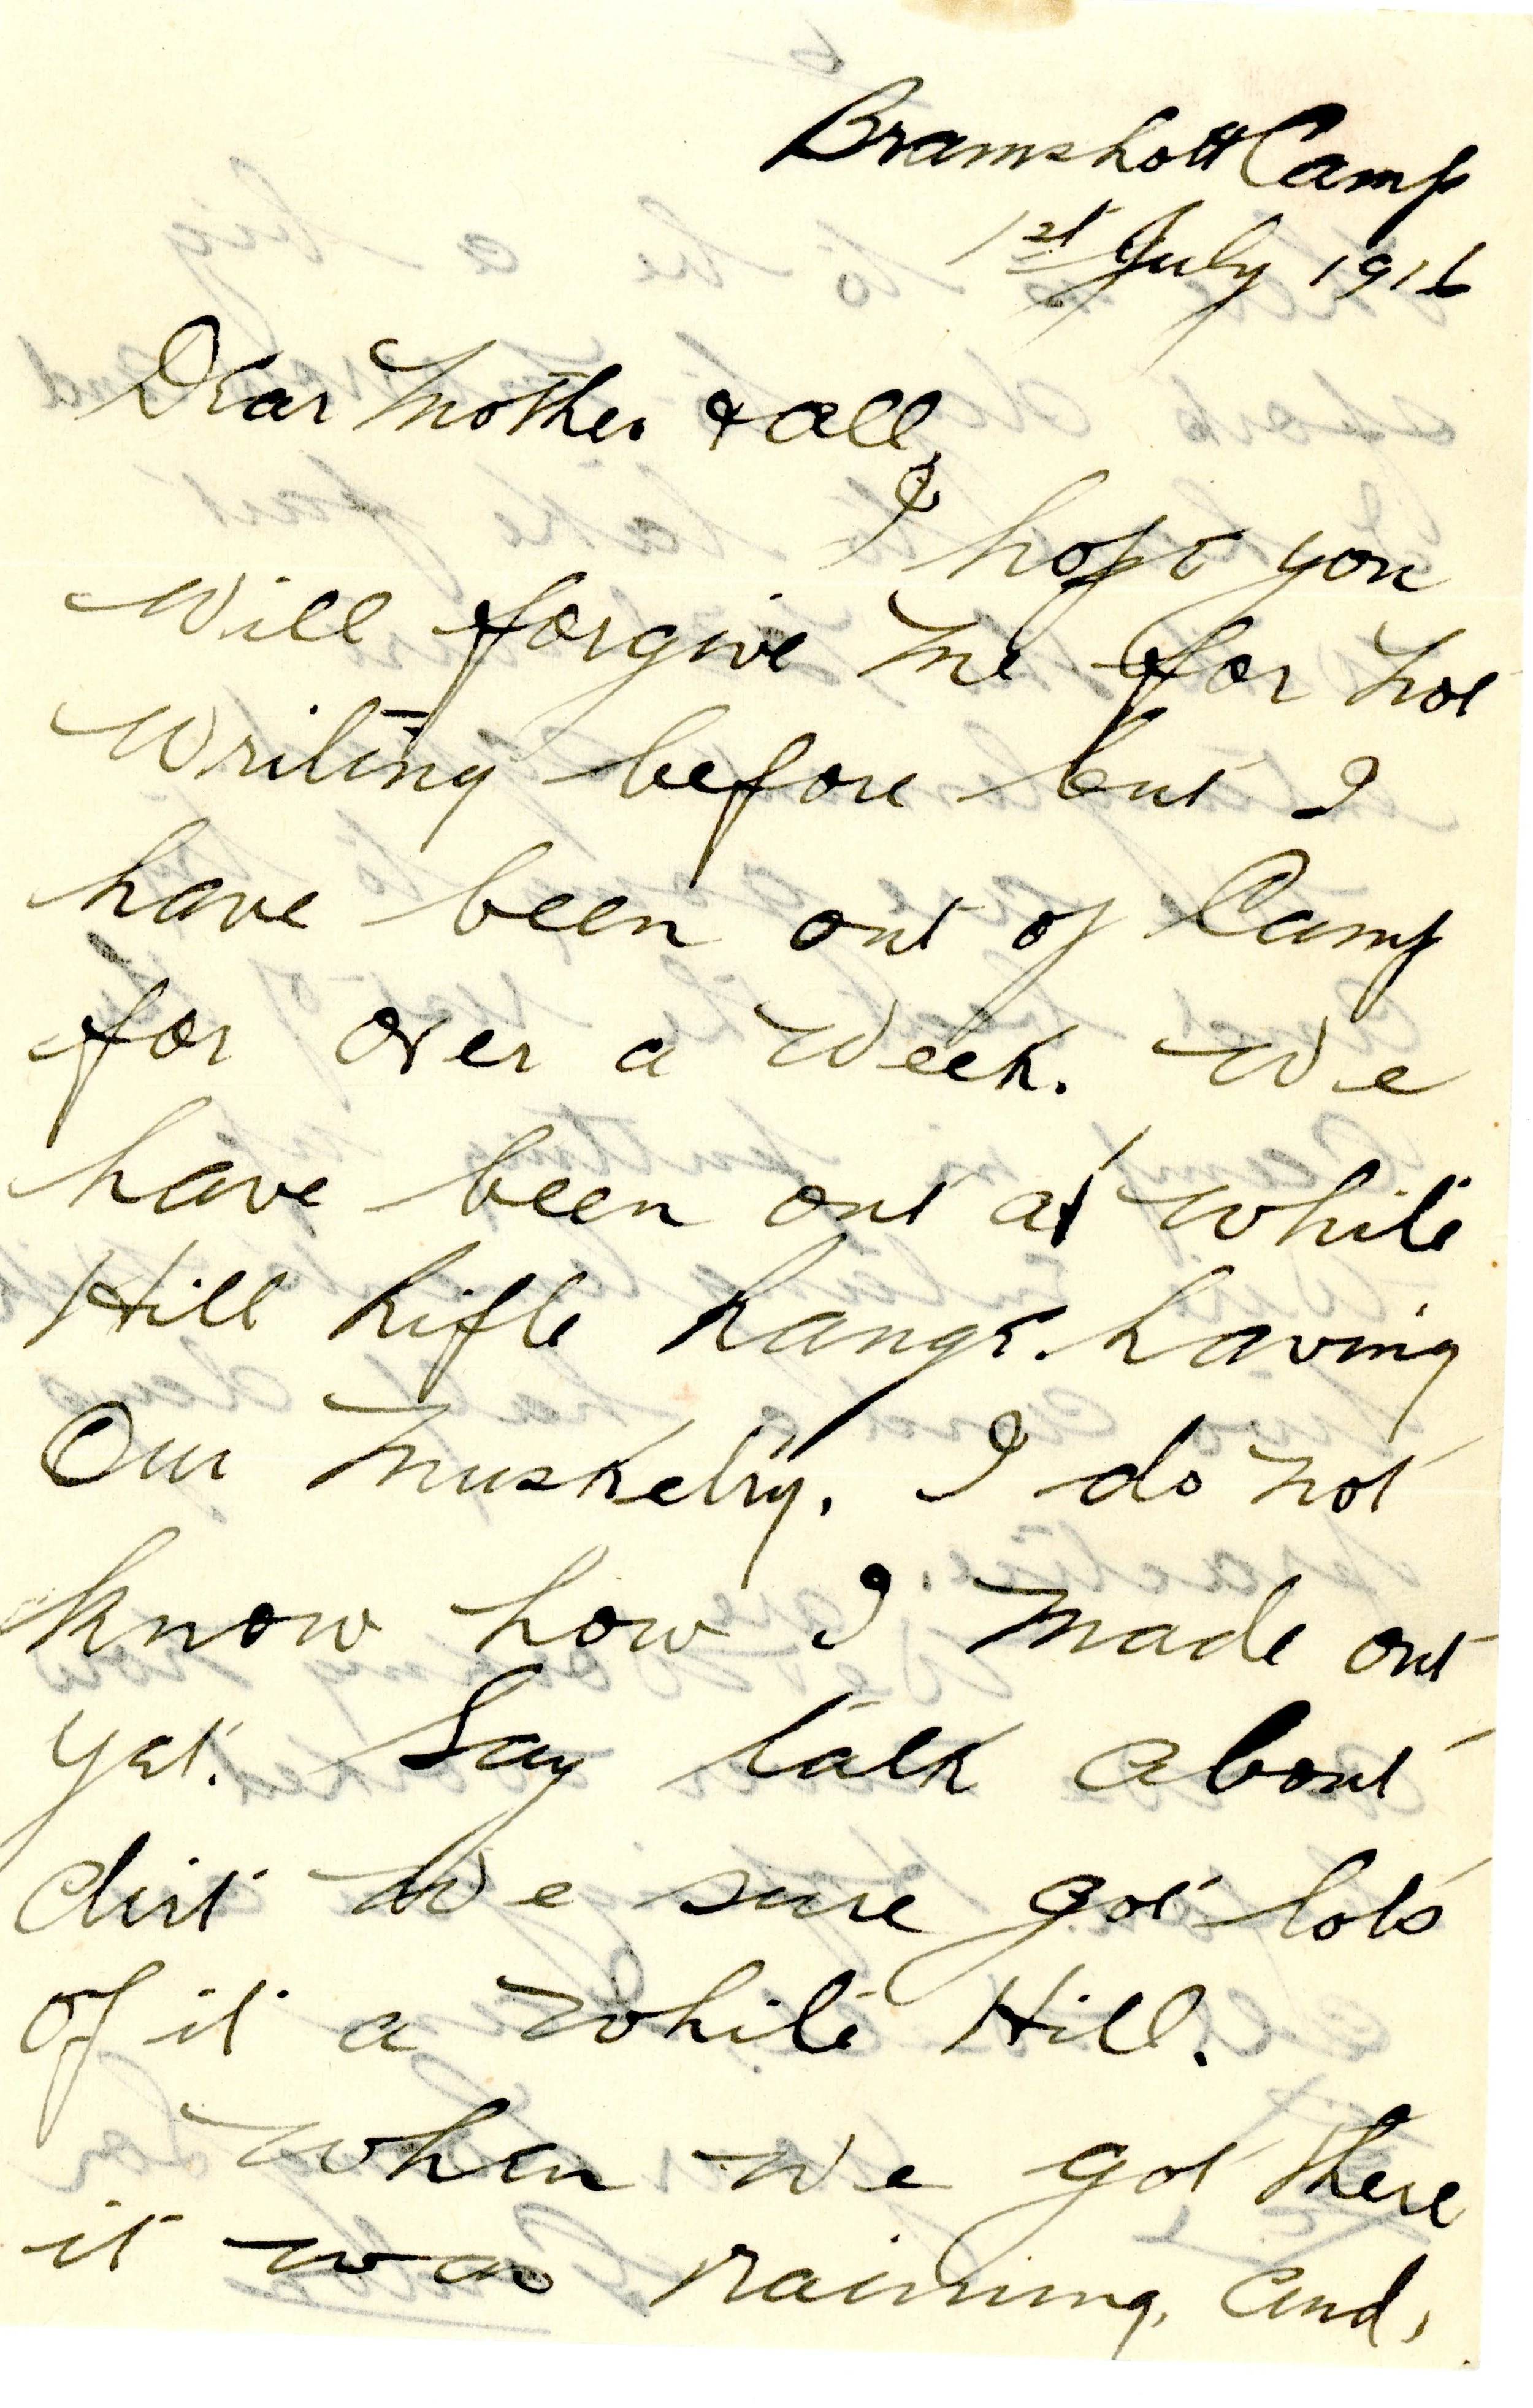 Bramshott Camp
1st July 1916
Dear Mother & all,
I hope you
will forgive me for not
writing before but I
have been out of Camp
for over a week. We
have been out at White
Hill Rifle Range. having
Our Musketry. I do not
know how I made out
yet. Say talk about
dirt we sure got lots
of it a White Hill.
When we got there
it was raining, and,